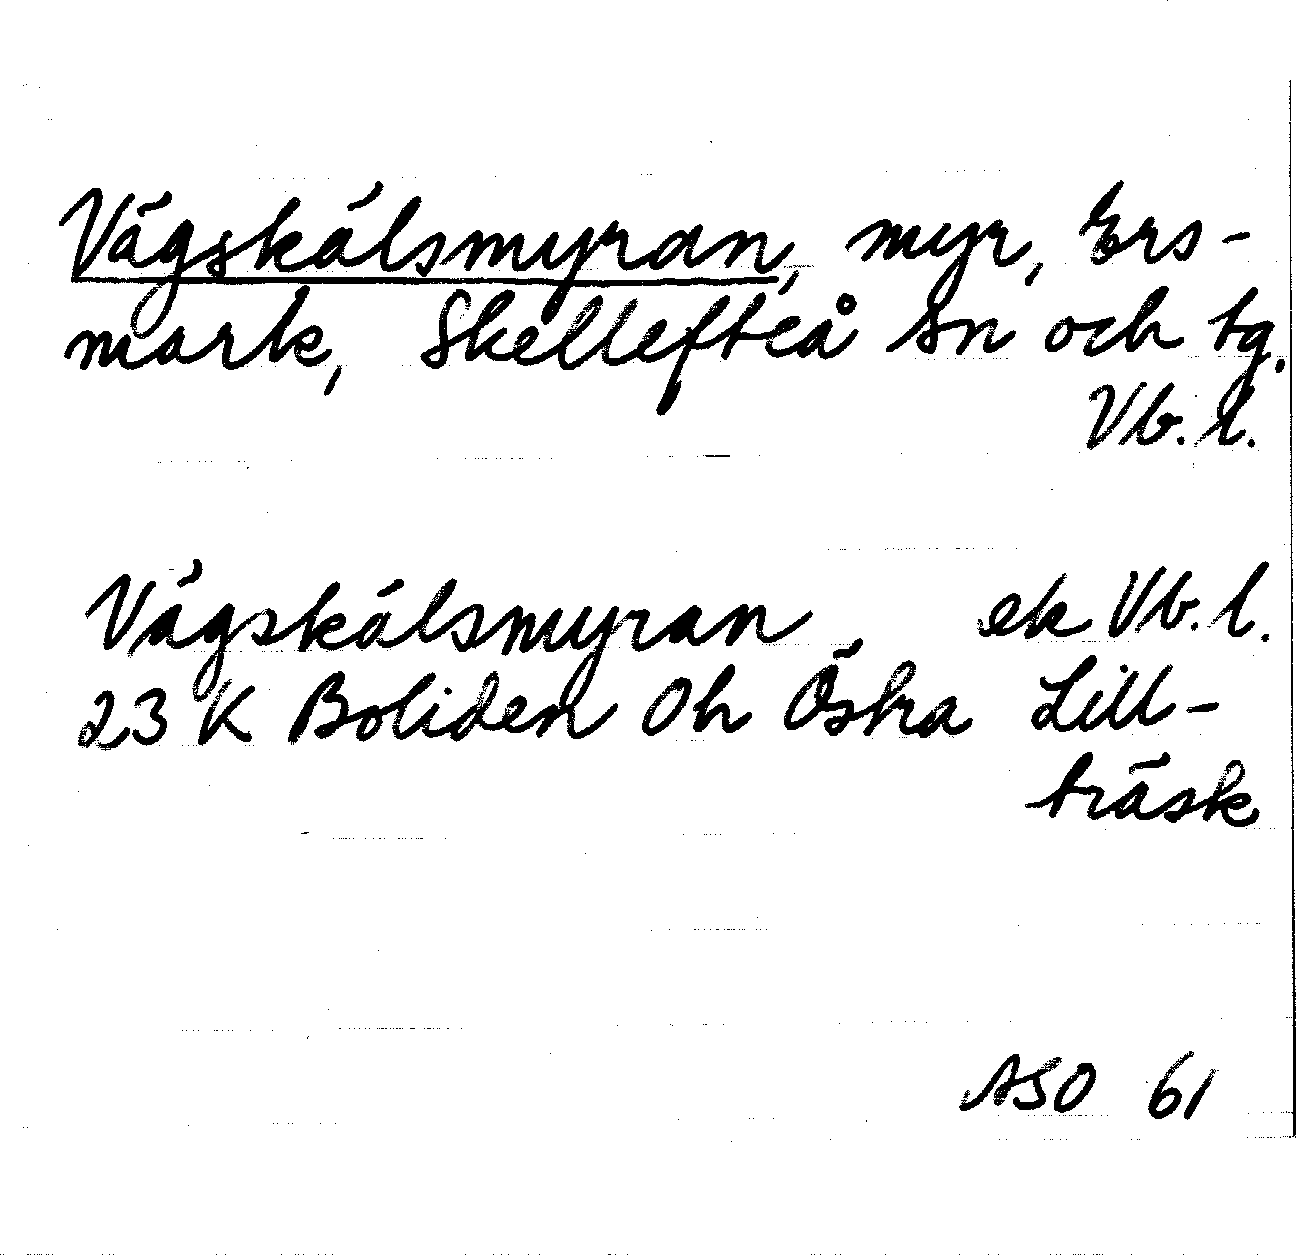 Vägskälsmyran, myr, Ers-
mark, Skellefteå sn och tg.
Vb. l.
Vägskälsmyran ek Vb. l.
23 K Boliden Oh Östra Lill-
träsk
ASO 61